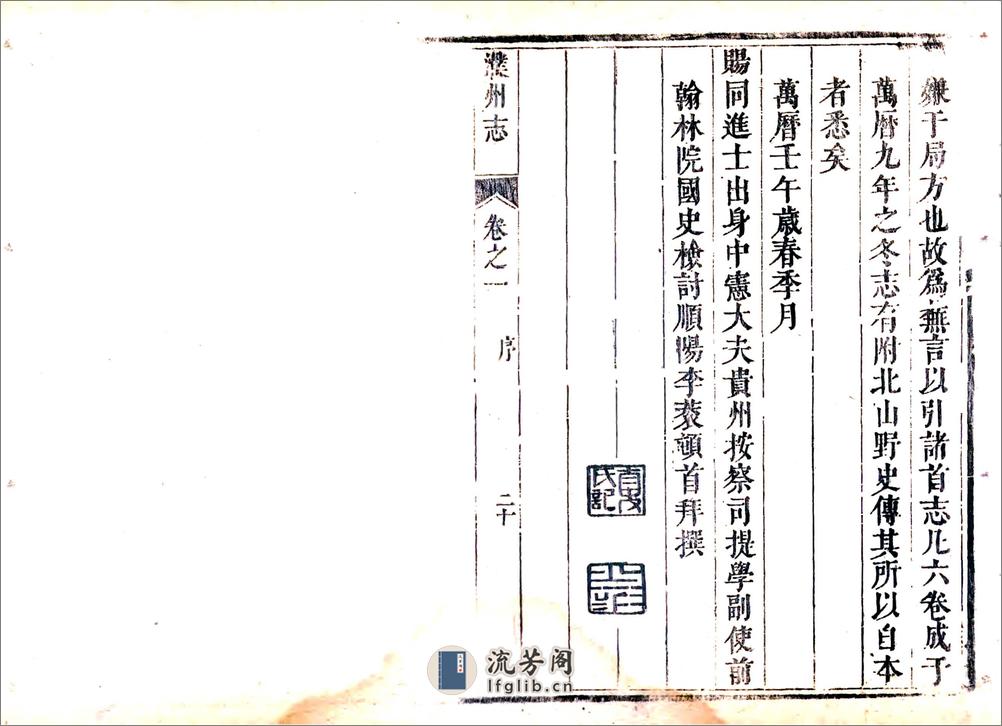 嫌于局方也故爲蕪言以引諸首志凡六卷成于
萬曆九年之冬志有附北山野史傳其所以自本
者悉矣
萬曆壬午歲春季月
賜同進士出身中憲大夫貴州按察司提學副使前
翰林院國史檢討順陽李蓘頓首拜撰
濮州志
卷之一
序
二十
流芳阁
lfglib.cn